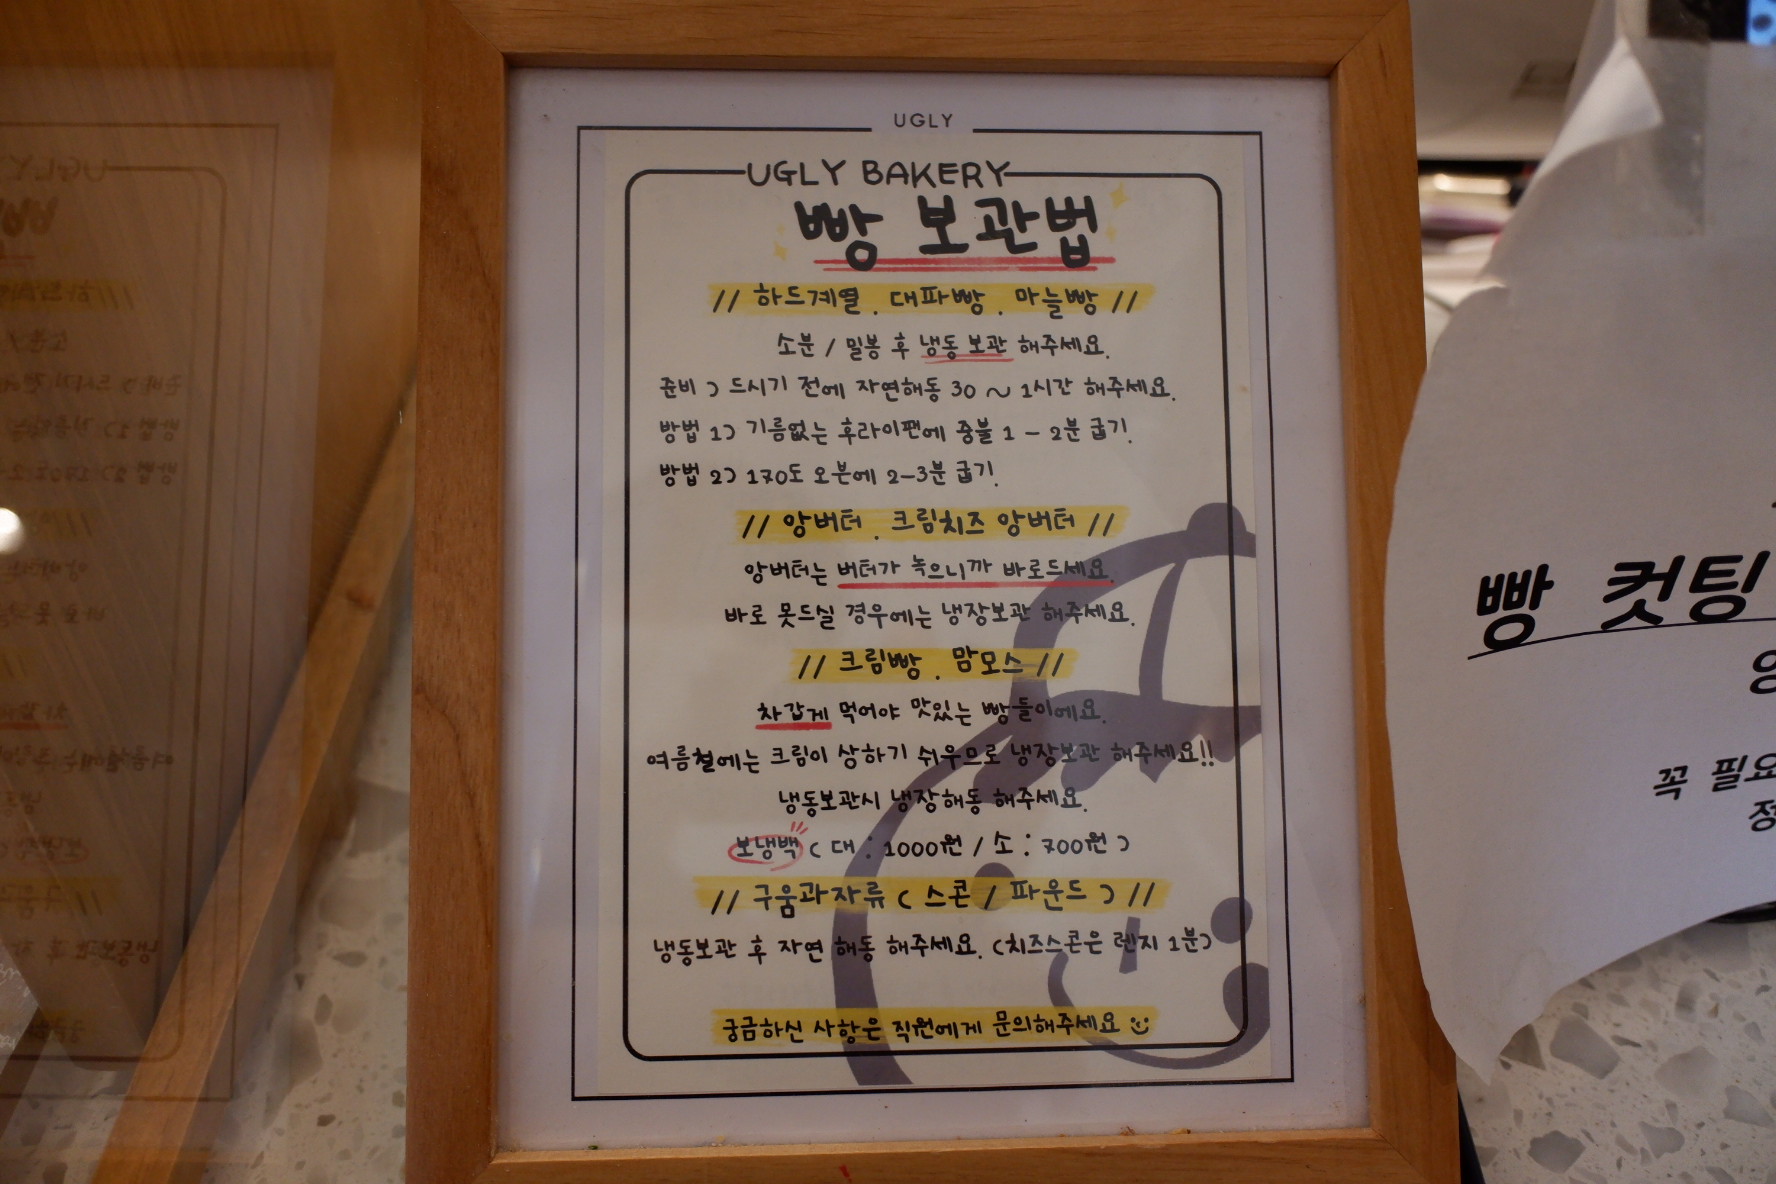 UGLY
UGLY BAKERY
빵 보관법
// 하드계열. 대파빵. 마늘빵 //
소분 / 밀봉 후 냉동 보관 해주세요.
준비) 드시기 전에 자연해동 30 ~ 1시간 해주세요.
방법 1) 기름없는 후라이팬에 중불 1 - 2분 굽기.
방법 2) 170도 오븐에 2-3분 굽기.
// 앙버터. 크림치즈 앙버터 //
앙버터는 버터가 녹으니까 바로드세요.
바로 못드실 경우에는 냉장보관 해주세요.
// 크림빵. 맘모스 //
차갑게 먹어야 맛있는 빵들이에요.
여름철에는 크림이 상하기 쉬우므로 냉장보관 해주세요!!
냉동보관시 냉장해동 해주세요.
보냉백 ( 대 : 1000원 / 소 : 700원 )
// 구움과자류 ( 스콘 / 파운드 ) //
냉동보관 후 자연 해동 해주세요. (치즈스콘은 렌지 1분)
궁금하신 사항은 직원에게 문의해주세요
빵 컷팅
꼭 필요